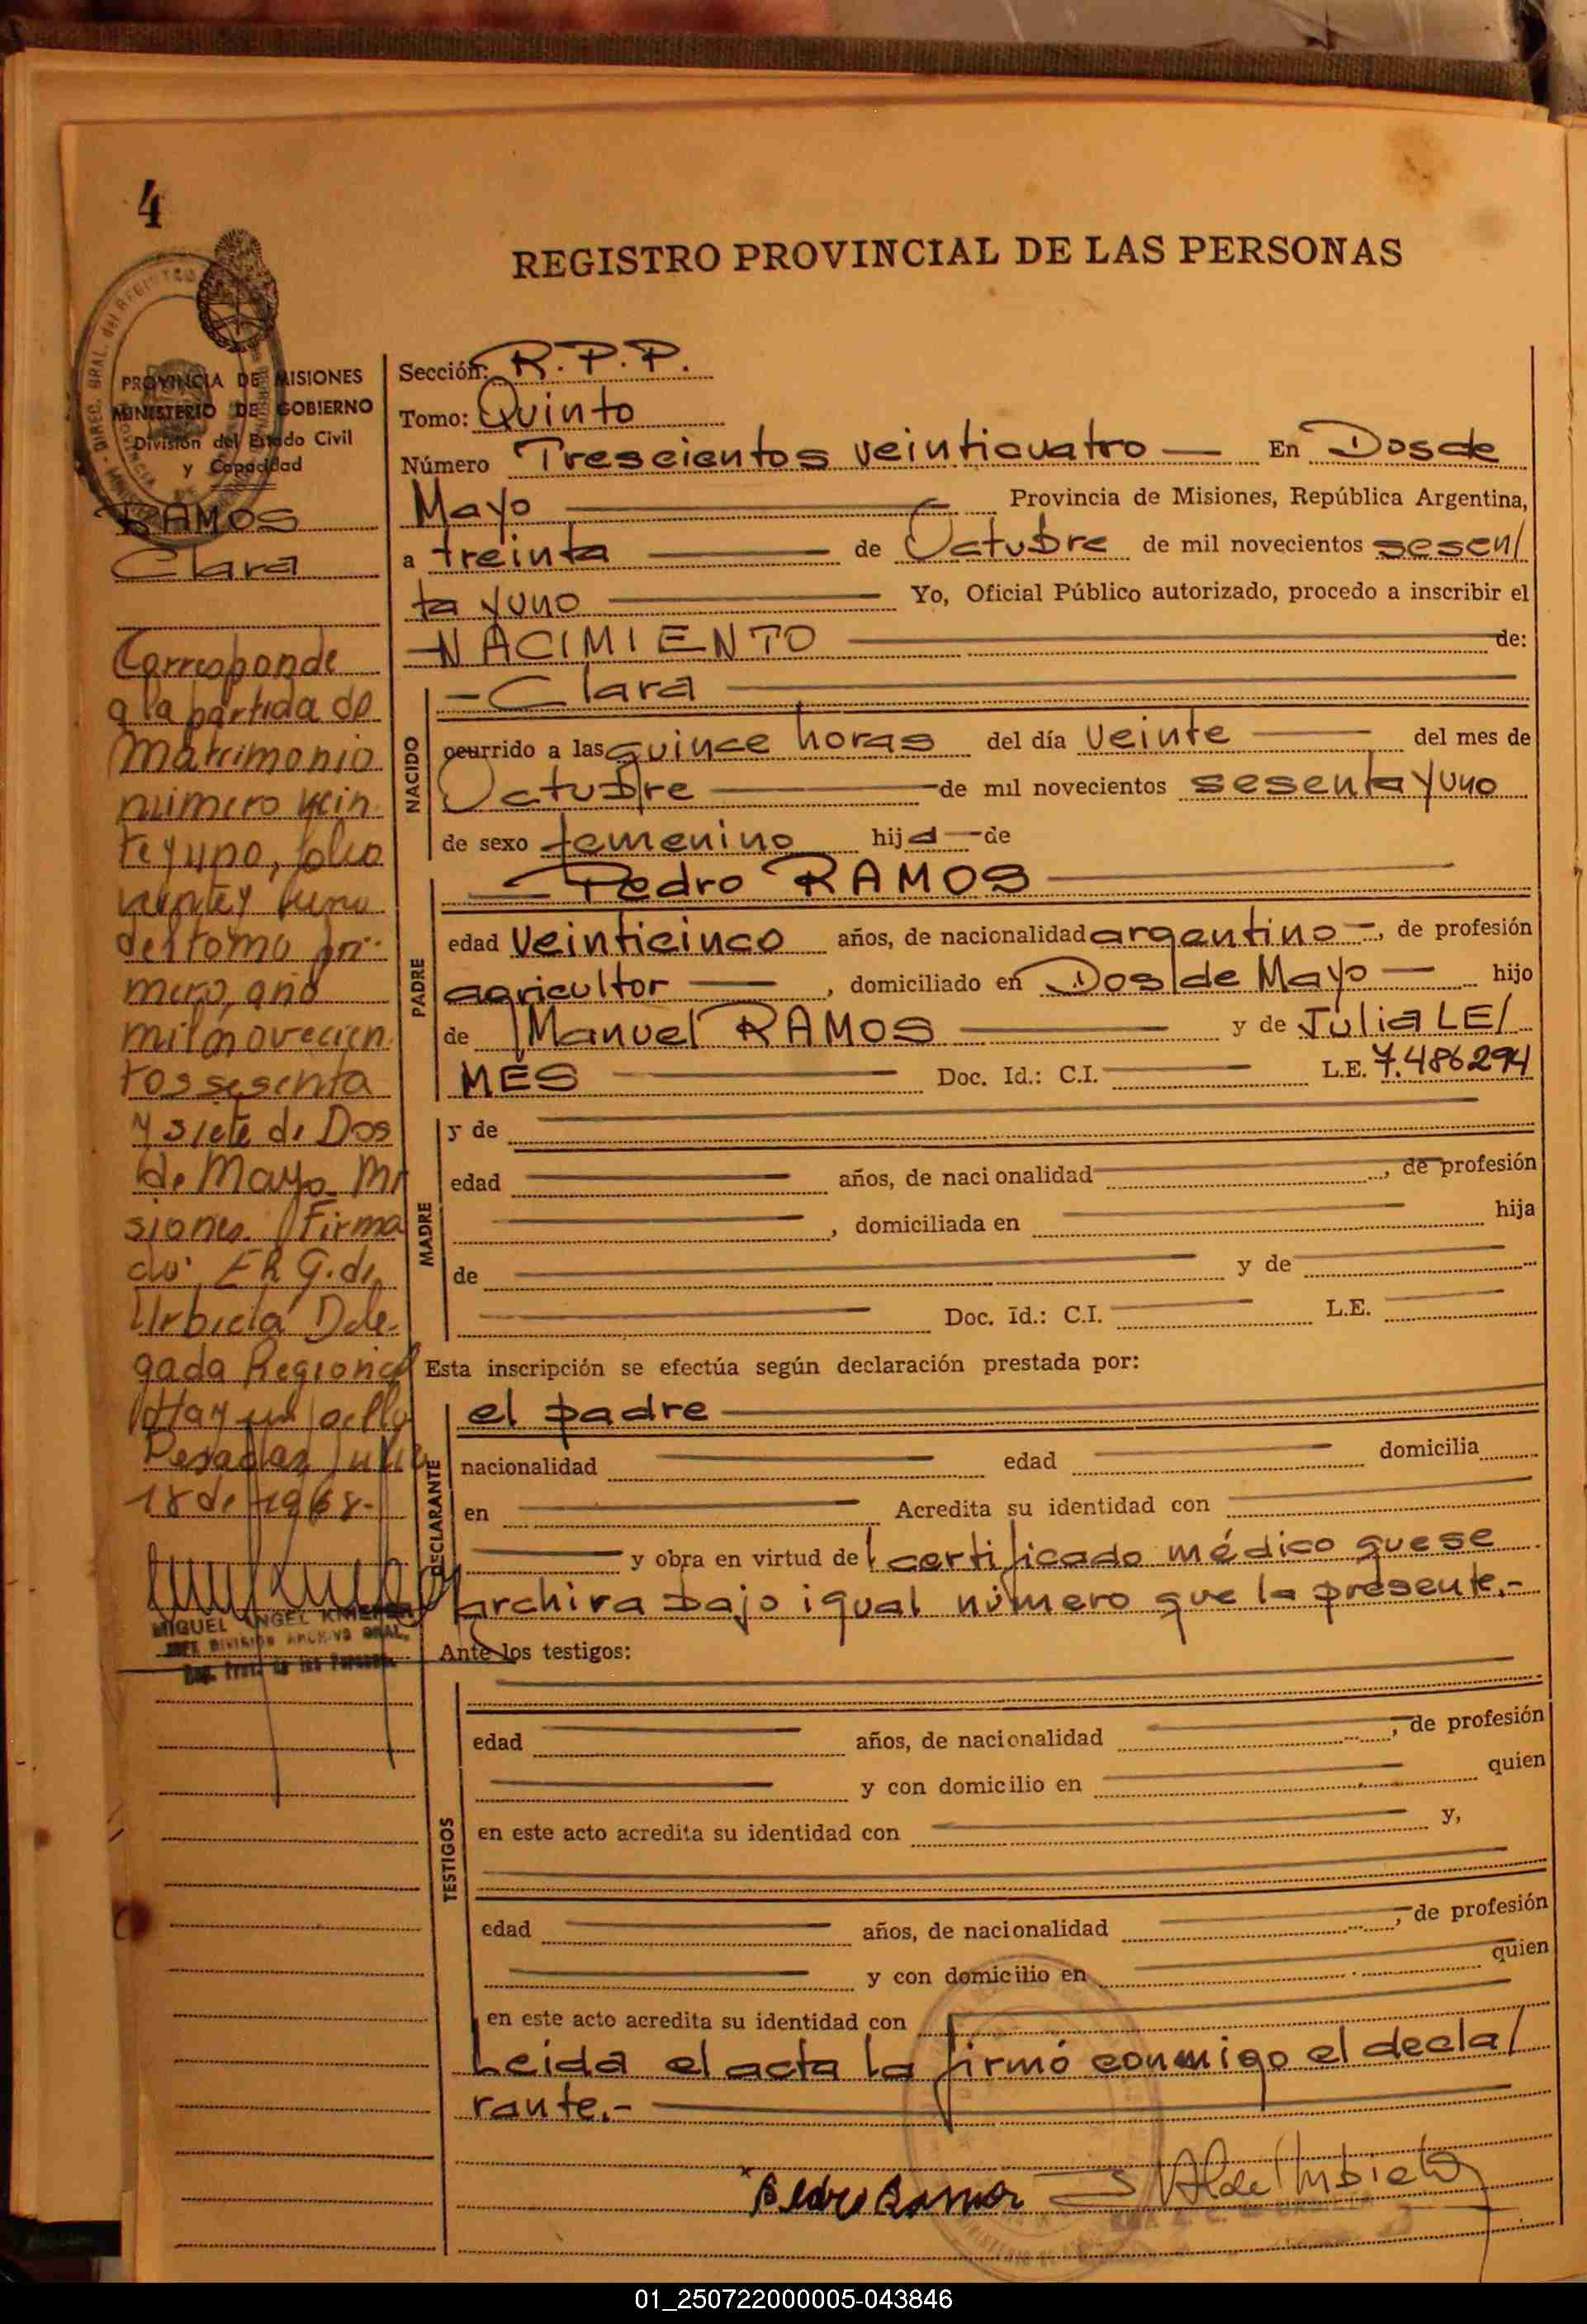 4
REGISTRO PROVINCIAL DE LAS PERSONAS
PROVINCIA DE MISIONES
MINISTERIO DE GOBIERNO
División del Estado Civil
y Capacidad
RAMOS
Clara
Corresponde
a la partida de
Matrimonio
número vein
te y uno, folio
veinte y uno
del tomo pri-
mero, año
mil novecien
tos sesenta
y siete de Dos
de Mayo Mi
siones. Firma
do: E R G. de
Urbieta Dele-
gada Regional
Hay un sello
Posadas Julio
18 de 1968-
MIGUEL ANGEL
JEFE DIVISION ARCHIVO GRAL.
Sección: R.P.P.
Tomo: Quinto
Número Trescientos veinticuatro — En Dos de
Mayo — Provincia de Misiones, República Argentina,
a treinta — de Octubre de mil novecientos sesen/
ta y uno — Yo, Oficial Público autorizado, procedo a inscribir el
— NACIMIENTO — de:
NACIDO
— Clara —
ocurrido a las quince horas del día veinte — del mes de
Octubre — de mil novecientos sesenta y uno
de sexo femenino hija — de
PADRE
— Pedro RAMOS —
edad veinticinco años, de nacionalidad argentino —, de profesión
agricultor —, domiciliado en Dos de Mayo — hijo
de Manuel RAMOS — y de Julia LE/
MES — Doc. Id.: C.I. — L.E. 7.486294
MADRE
y de —
edad — años, de nacionalidad —, de profesión
—, domiciliada en — hija
de — y de —
— Doc. Id.: C.I. — L.E. —
Esta inscripción se efectúa según declaración prestada por:
DECLARANTE
el padre —
nacionalidad — edad — domicilia
en — Acredita su identidad con —
— y obra en virtud de certificado médico que se
archiva bajo igual número que la presente.-
Ante los testigos:
TESTIGOS
edad — años, de nacionalidad —, de profesión
— y con domicilio en — quien
en este acto acredita su identidad con — y,
edad — años, de nacionalidad —, de profesión
— y con domicilio en — quien
en este acto acredita su identidad con —
Leida el acta la firmó conmigo el decla/
rante.- —
Pedro Ramos
de Urbieta
01_250722000005-043846